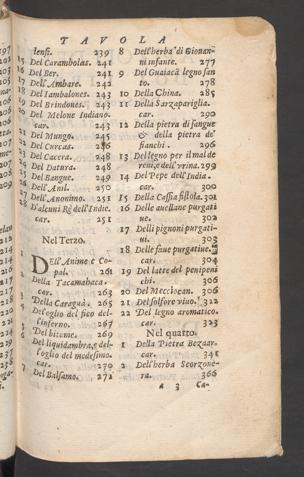 TAVOLA
lensi. 239
15 Del Carambolas. 241
16 Del Ber. 241
17 Dell'Ambare. 242
18 Del Iambalones. 243
19 Del Brindones. 243
20 Del Melone Indiano.
car. 243
21 Del Mungo. 245
22 Del Curcas.
23 Del Cacera. 248
24 Del Datura. 248
25 Del Bangue. 249
26 Dell'Anil. 250
27 Dell'Anonimo. 251
28 D'alcuni Rè dell'Indie.
car. 251
Nel Terzo.
1 DEll'Anime e Co-
pal. 261
2 Della Tacamahaca.
car. 263
3 Della Caragua. 265
4 Dell'oglio del fico del-
l'inferno. 267
5 Del bitume. 269
6 Del liquidambra, e del-
l'oglio del medesimo.
car. 270
7 Del Balsamo. 272
8 Dell'herba di Giouan-
ni infante. 277
9 Del Guaiacã legno san
to. 278
10 Della China. 285
11 Della Sarzapariglia.
car. 290
12 Della pietra di sangue
& della pietra de'
fianchi. 296
13 Del legno per il mal de
reni, e dell'vrina. 299
14 Del Pepe dell'India.
car. 300
15 Della Cassia fistola. 301
16 Delle auellane purgati
ue. 302
17 Delli pignoni purgati-
ui. 303
18 Delle faue purgatiue.
car. 304
19 Del latte del penipeni
chi. 306
20 Del Mecchoean. 306
21 Del solfore viuo. 322
22 Del legno aromatico.
car. 323
Nel quarto.
1 Della Pietra Bezaar.
car. 341
2 Dell'herba Scorzone-
ra. 366
a 3 Ca-